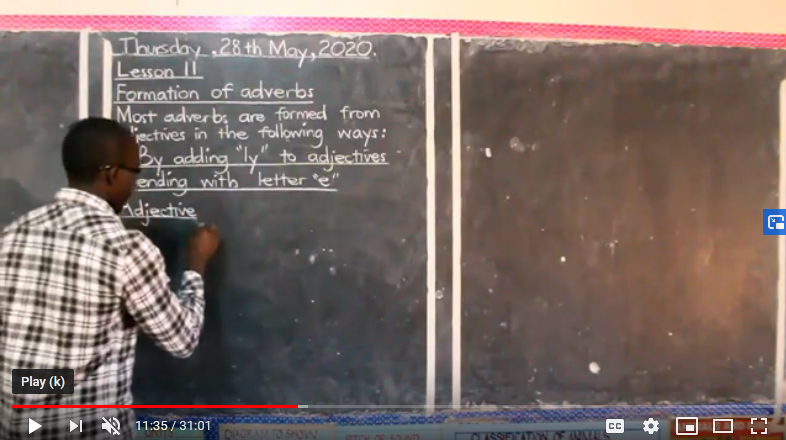 Thursday, 28th May, 2020.
Lesson 11
Formation of adverbs
Most adverbs are formed from
djectives in the following ways:
By adding "ly" to adjectives
ending with letter "e"
Adjective
Play (k)
11:35 / 31:01
CC
DIAGRAM TO SHOW
CLASSIFICATION OF